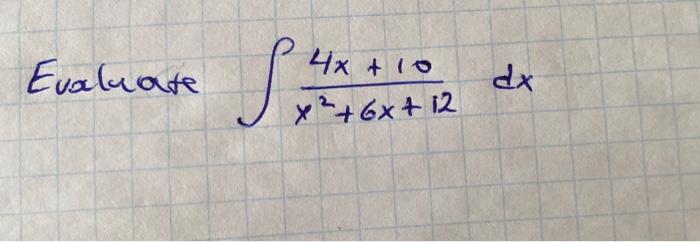 Evaluate ∫ (4x + 10)/(x² + 6x + 12) dx